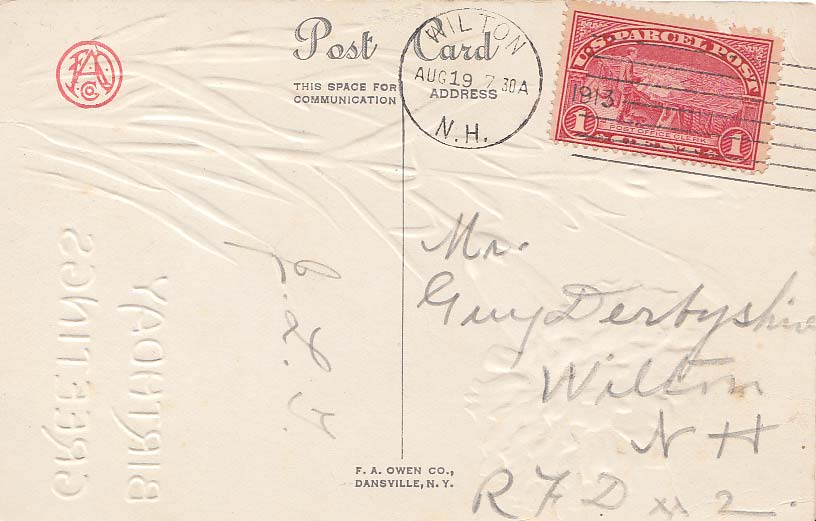 Post Card
THIS SPACE FOR
COMMUNICATION
ADDRESS
WILTON
AUG 19 7 30A
1913
N.H.
U.S. PARCEL POST
POST OFFICE CLERK
1 1
F.A.O
Co
BIRTHDAY
GREETINGS
Mr.
Guy Derbyshire
Wilton
N H
R F D # 2.
F. A. OWEN CO.,
DANSVILLE, N. Y.